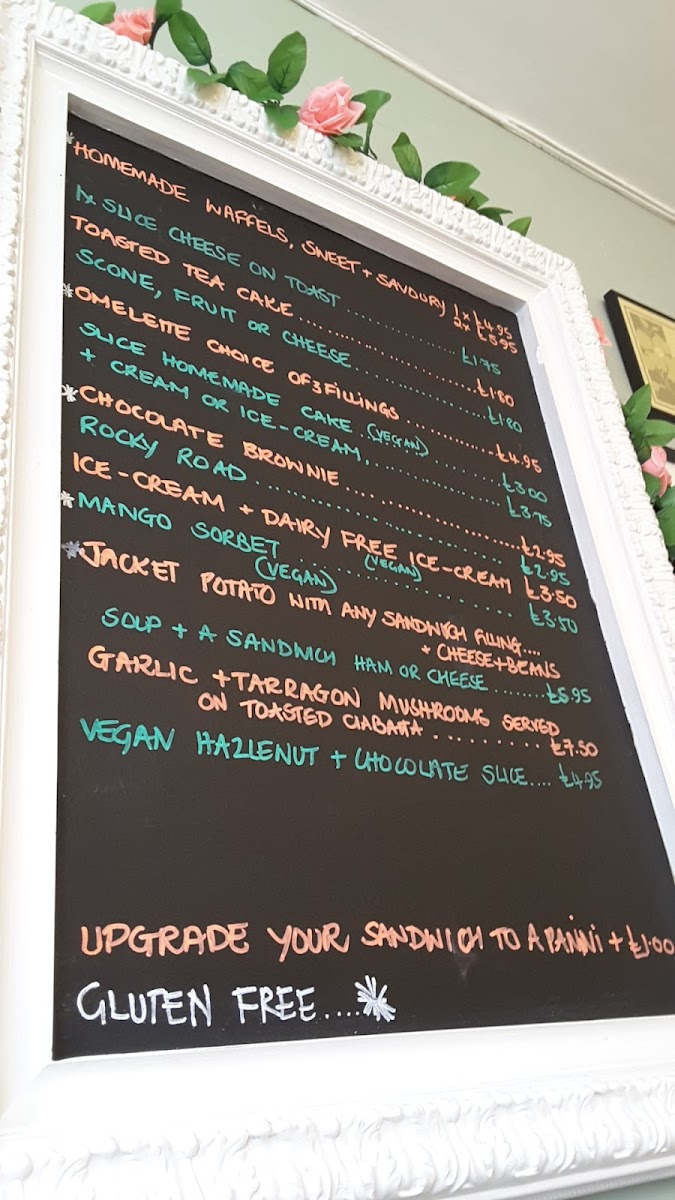 *HOMEMADE WAFFELS, SWEET + SAVOURY 1x £4.95
2x £5.95
1x SLICE CHEESE ON TOAST ................. £1.75
TOASTED TEA CAKE ........................ £1.80
SCONE, FRUIT OR CHEESE .................. £1.80
*OMELETTE CHOICE OF 3 FILLINGS ............ £4.95
SLICE HOMEMADE CAKE (VEGAN) ........ £3.00
+ CREAM OR ICE-CREAM, ............... £3.75
*CHOCOLATE BROWNIE ....................... £2.95
ROCKY ROAD .............................. £2.95
ICE-CREAM + DAIRY FREE ICE-CREAM £3.50
(VEGAN)
*MANGO SORBET ..................... £3.50
(VEGAN)
*JACKET POTATO WITH ANY SANDWICH FILLING....
+ CHEESE+BEANS
SOUP + A SANDWICH HAM OR CHEESE ........ £6.95
GARLIC + TARRAGON MUSHROOMS SERVED
ON TOASTED CIABATTA ......... £7.50
VEGAN HAZLENUT + CHOCOLATE SLICE.... £4.95
UPGRADE YOUR SANDWICH TO A PANINI + £1.00
GLUTEN FREE....*